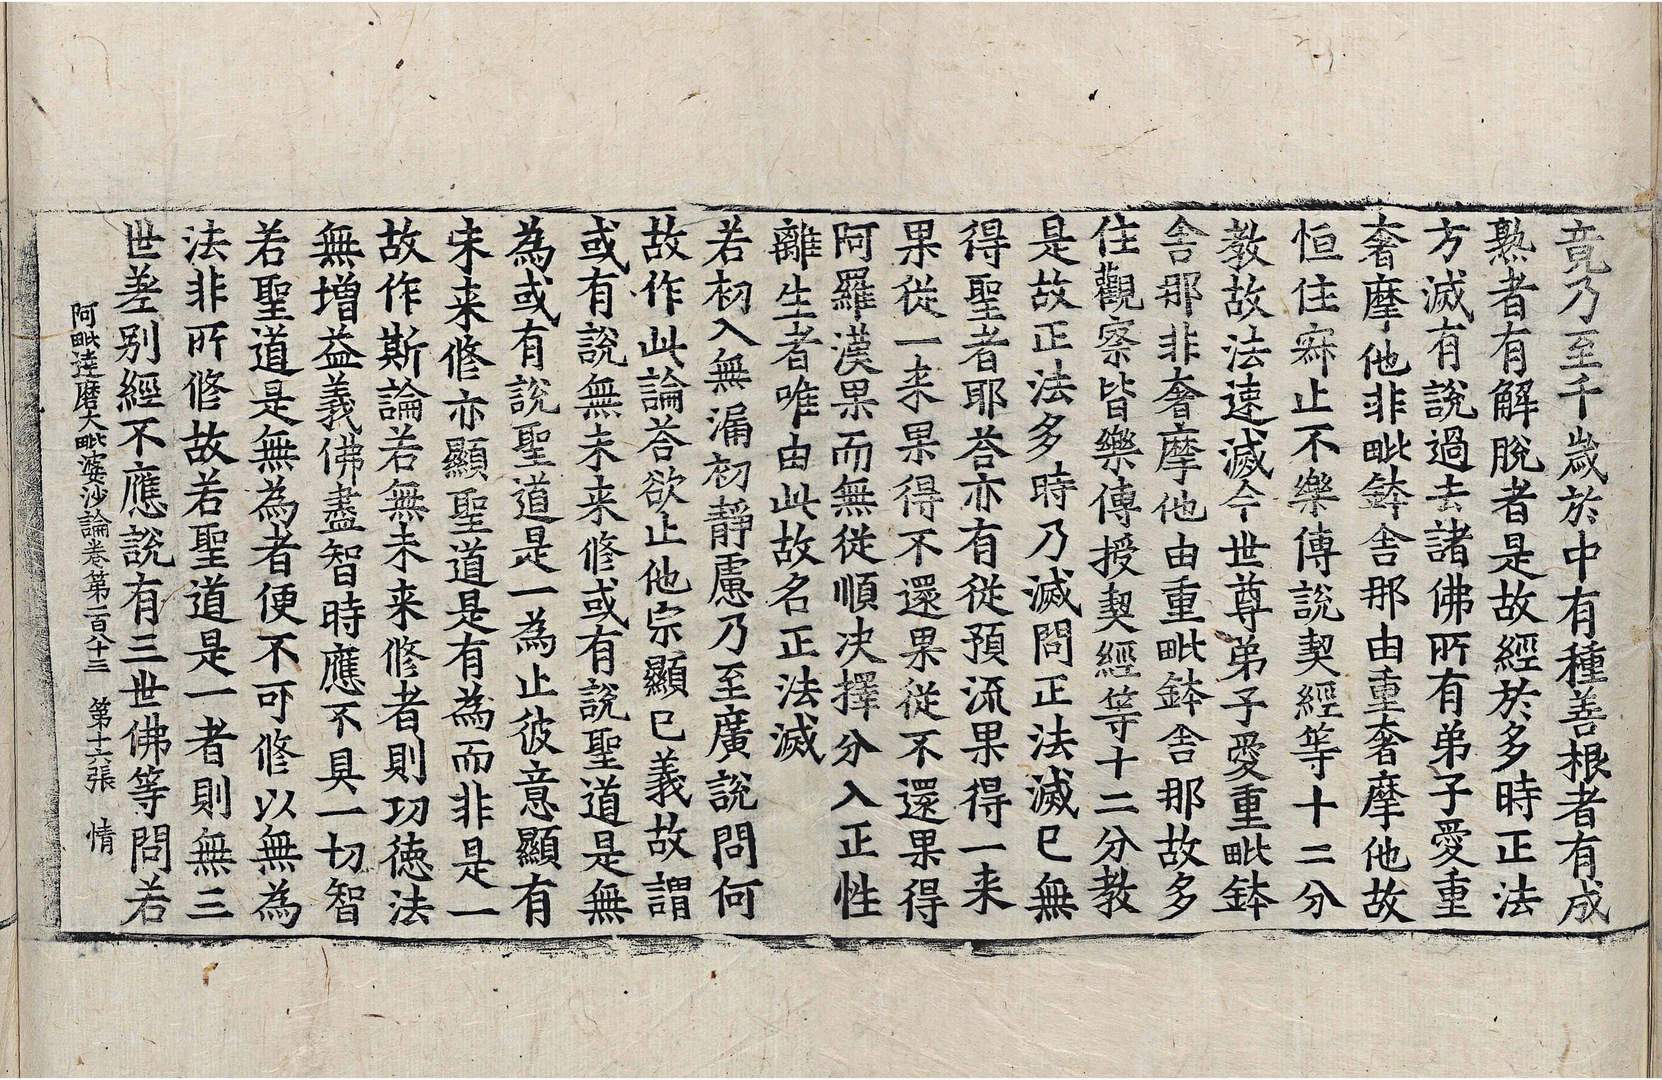 竟乃至千歲於中有種善根者有成
熟者有解脫者是故經於多時正法
方滅有說過去諸佛所有弟子愛重
奢摩他非毗鉢舍那由重奢摩他故
恒住寂止不樂傳說契經等十二分
教故法速滅今世尊弟子愛重毗鉢
舍那非奢摩他由重毗鉢舍那故多
住觀察皆樂傳授契經等十二分教
是故正法多時乃滅問正法滅已無
得聖者耶荅亦有從預流果得一来
果從一来果得不還果從不還果得
阿羅漢果而無從順决擇分入正性
離生者唯由此故名正法滅
若初入無漏初靜慮乃至廣說問何
故作此論荅欲止他宗顯已義故謂
或有說無未来修或有說聖道是無
為或有說聖道是一為止彼意顯有
未来修亦顯聖道是有為而非是一
故作斯論若無未来修者則功徳法
無增益義佛盡智時應不具一切智
若聖道是無為者便不可修以無為
法非所修故若聖道是一者則無三
世差别經不應說有三世佛等問若
阿毗達磨大毗婆沙論卷第一百八十三　第十六張　情